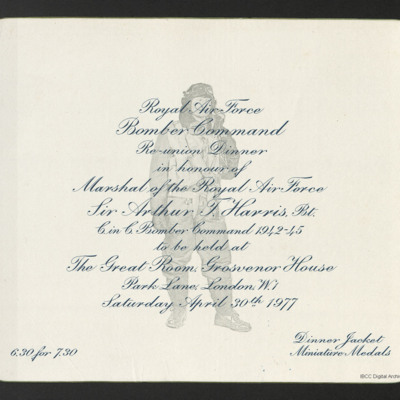 Royal Air Force
Bomber Command
Re-union Dinner
in honour of
Marshal of the Royal Air Force
Sir Arthur T. Harris, Bt.
C. in C. Bomber Command 1942-45
to be held at
The Great Room, Grosvenor House
Park Lane, London, W.1
Saturday April 30th 1977
6.30 for 7.30
Dinner Jacket
Miniature Medals
IBCC Digital Archi